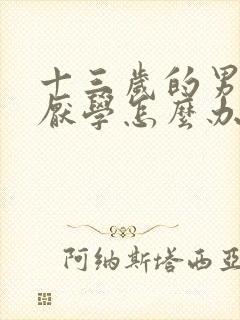 十三歲的男
厭學怎麼办
阿纳斯塔西亚